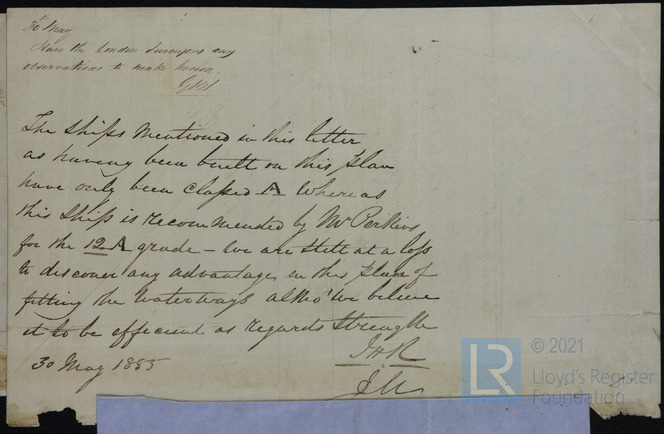 30 May
Have the London Surveyors any
observations to make hereon.
The Ships mentioned in this letter
as having been built on this plan
have only been classed A whereas
this Ship is recommended by Mr Perkins
for the 12 A grade – We are still at a loss
to discover any advantage in this plan of
fitting the Waterways altho' we believe
it to be efficient as regards Strength
30 May 1855
© 2021
LR
Lloyd's Register
Foundation